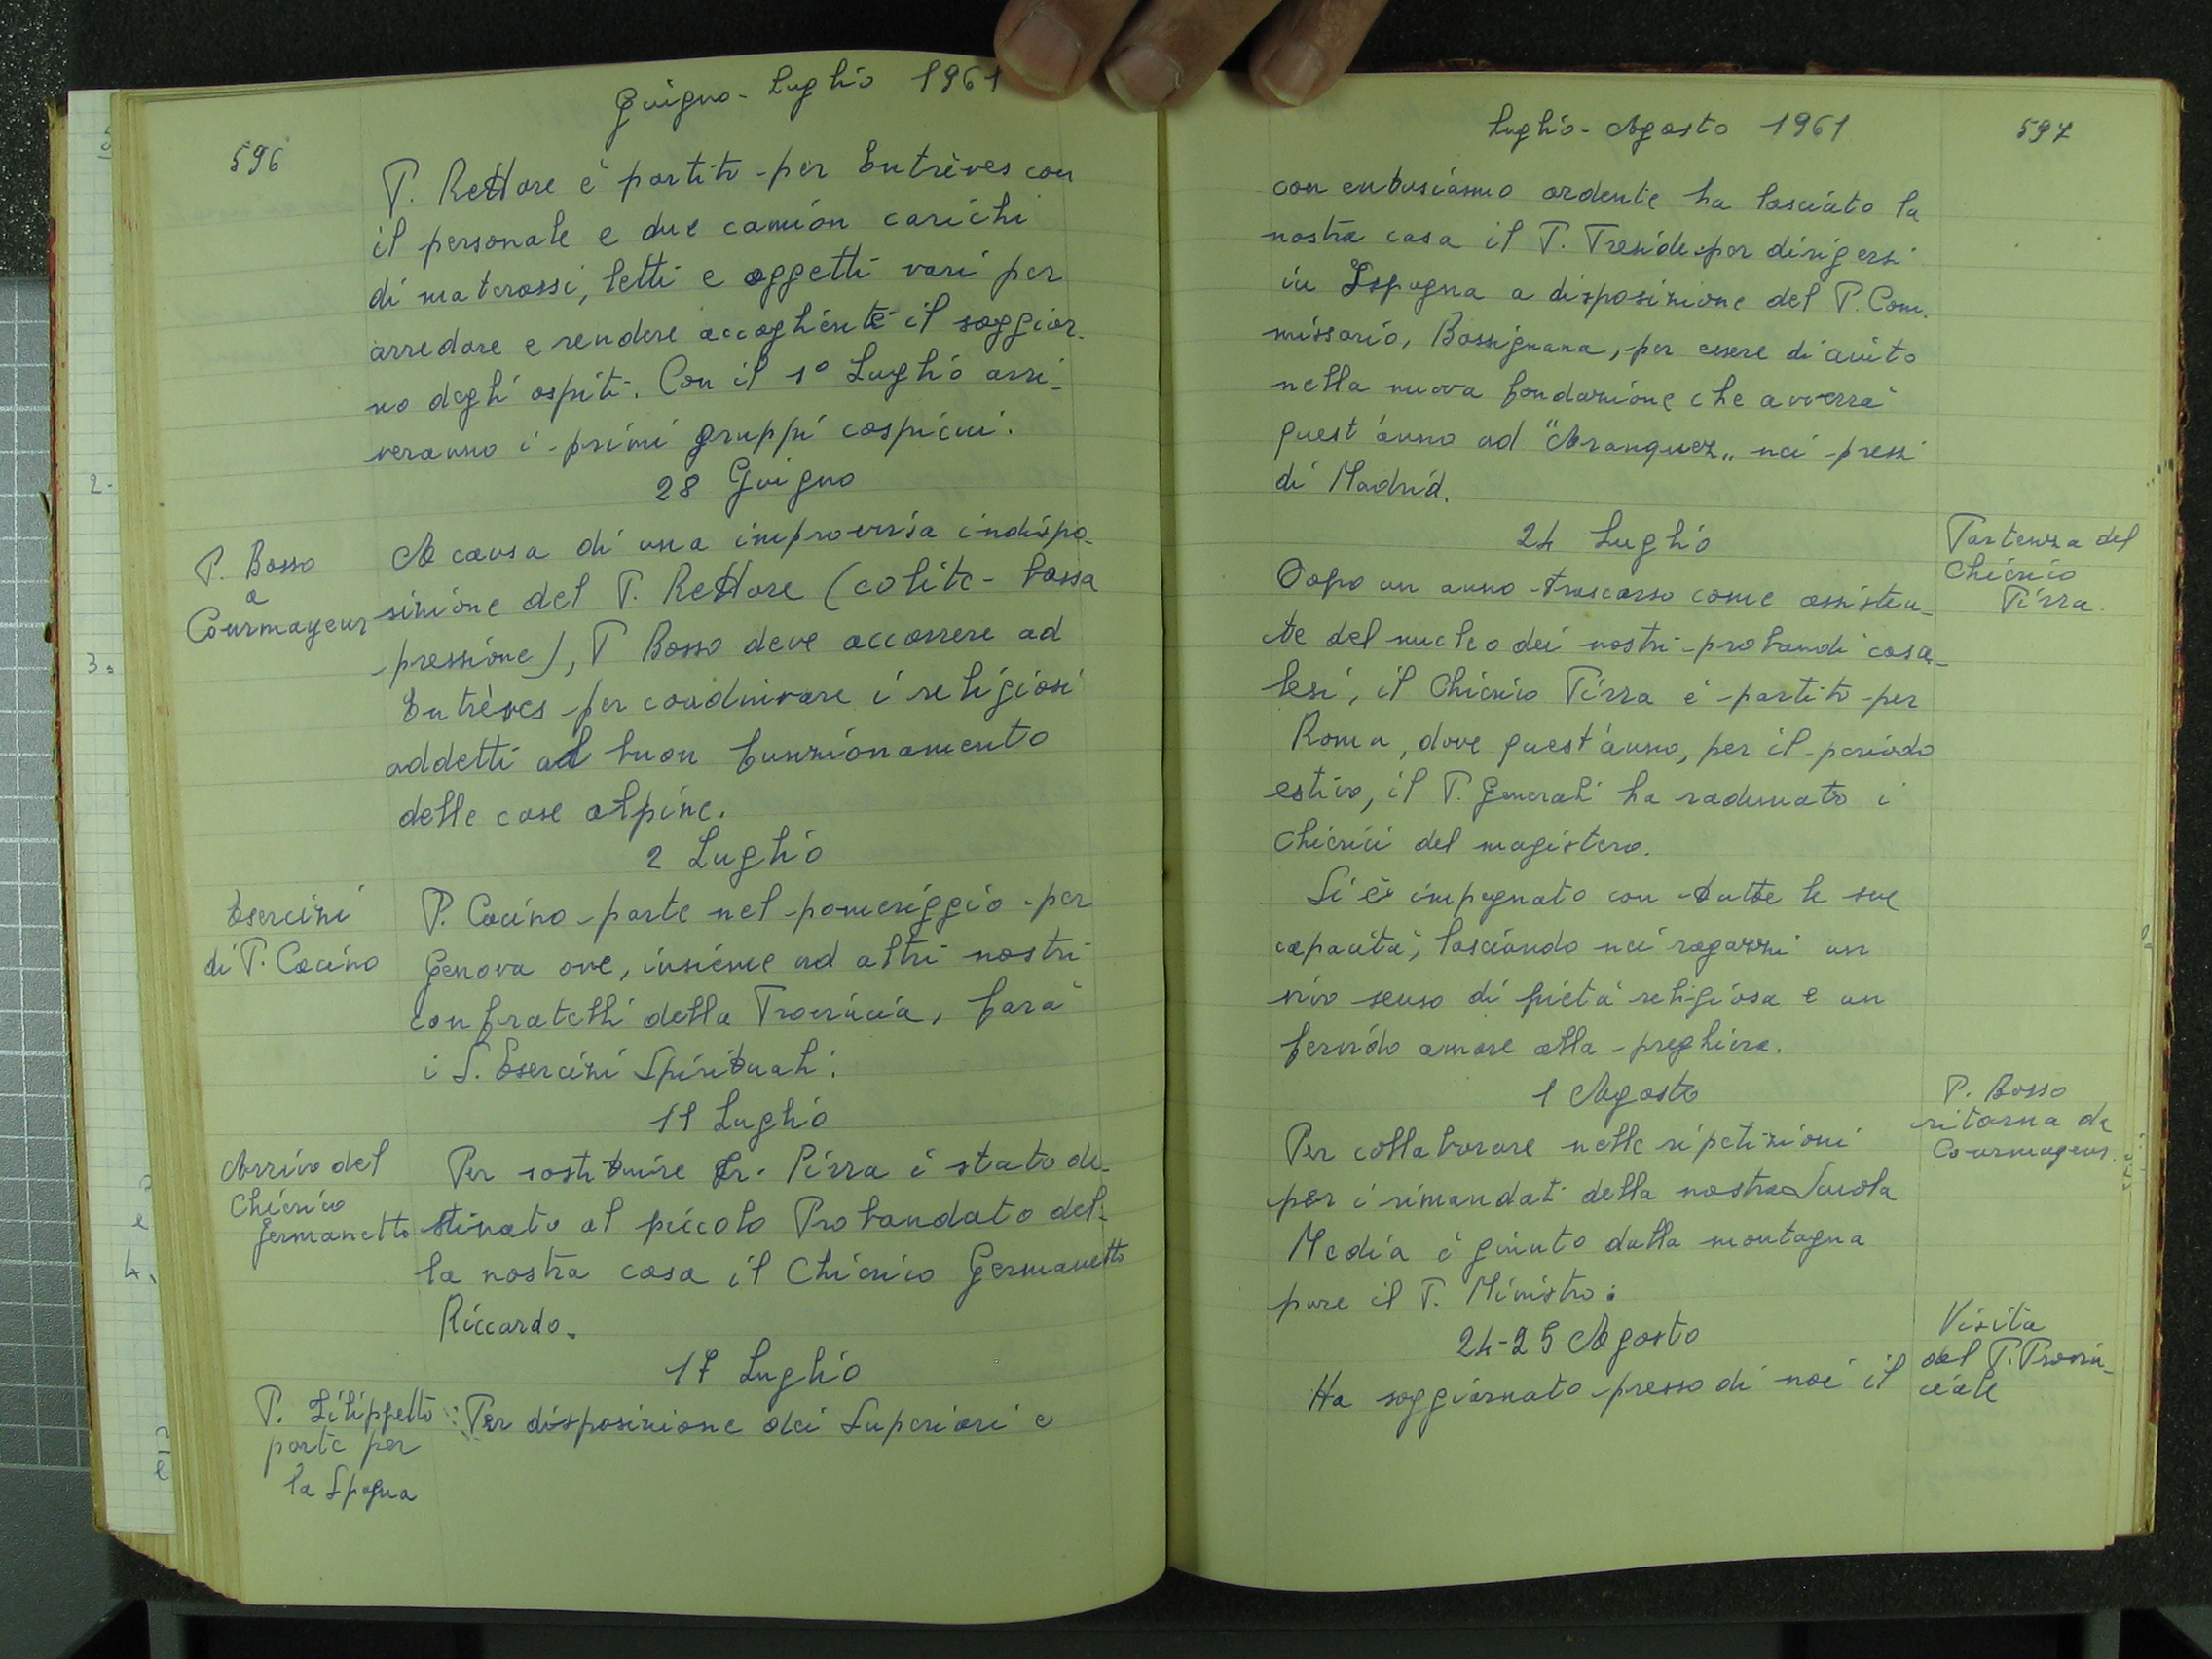 Giugno - Luglio 1961
596
P. Rettore è partito per Entrèves con
il personale e due camion carichi
di materassi, letti e oggetti vari per
arredare e rendere accogliente il soggior-
no degli ospiti. Con il 1° Luglio arri-
veranno i primi gruppi cospicui.
28 Giugno
P. Bosso
a
Courmayeur
A causa di una improvvisa indispo-
sizione del P. Rettore (colite - bassa
pressione), P Bosso deve accorrere ad
Entrèves per coadiuvare i religiosi
addetti al buon funzionamento
delle case alpine.
2 Luglio
Esercizi
di P. Cocino
P. Cocino parte nel pomeriggio per
Genova ove, insieme ad altri nostri
confratelli della Provincia, farà
i S. Esercizi Spirituali.
11 Luglio
Arrivo del
Chierico
Germanetto
Per sostituire Fr. Pirra è stato de-
stinato al piccolo Probandato del-
la nostra casa il Chierico Germanetto
Riccardo.
17 Luglio
P. Filippetto
parte per
la Spagna
Per disposizione dei Superiori e
Luglio - Agosto 1961
597
con entusiasmo ardente ha lasciato la
nostra casa il P. Preside per dirigersi
in Ispagna a disposizione del P. Com-
missario, Bassignana, per essere di aiuto
nella nuova fondazione che avverrà
quest'anno ad "Aranquez" nei pressi
di Madrid.
24 Luglio
Partenza del
Chierico
Pirra.
Dopo un anno trascorso come assisten-
te del nucleo dei nostri probandi casa-
lesi, il Chierico Pirra è partito per
Roma, dove quest'anno, per il periodo
estivo, il P. Generali ha radunato i
Chierici del magistero.
Si è impegnato con tutte le sue
capacità, lasciando nei ragazzi un
vivo senso di pietà religiosa e un
fervido amore alla preghiera.
1 Agosto
P. Bosso
ritorna da
Courmayeur.
Per collaborare nelle ripetizioni
per i rimandati della nostra Scuola
Media è giunto dalla montagna
pure il P. Ministro.
24-25 Agosto
Visita
del P. Provin-
ciale
Ha soggiornato presso di noi il